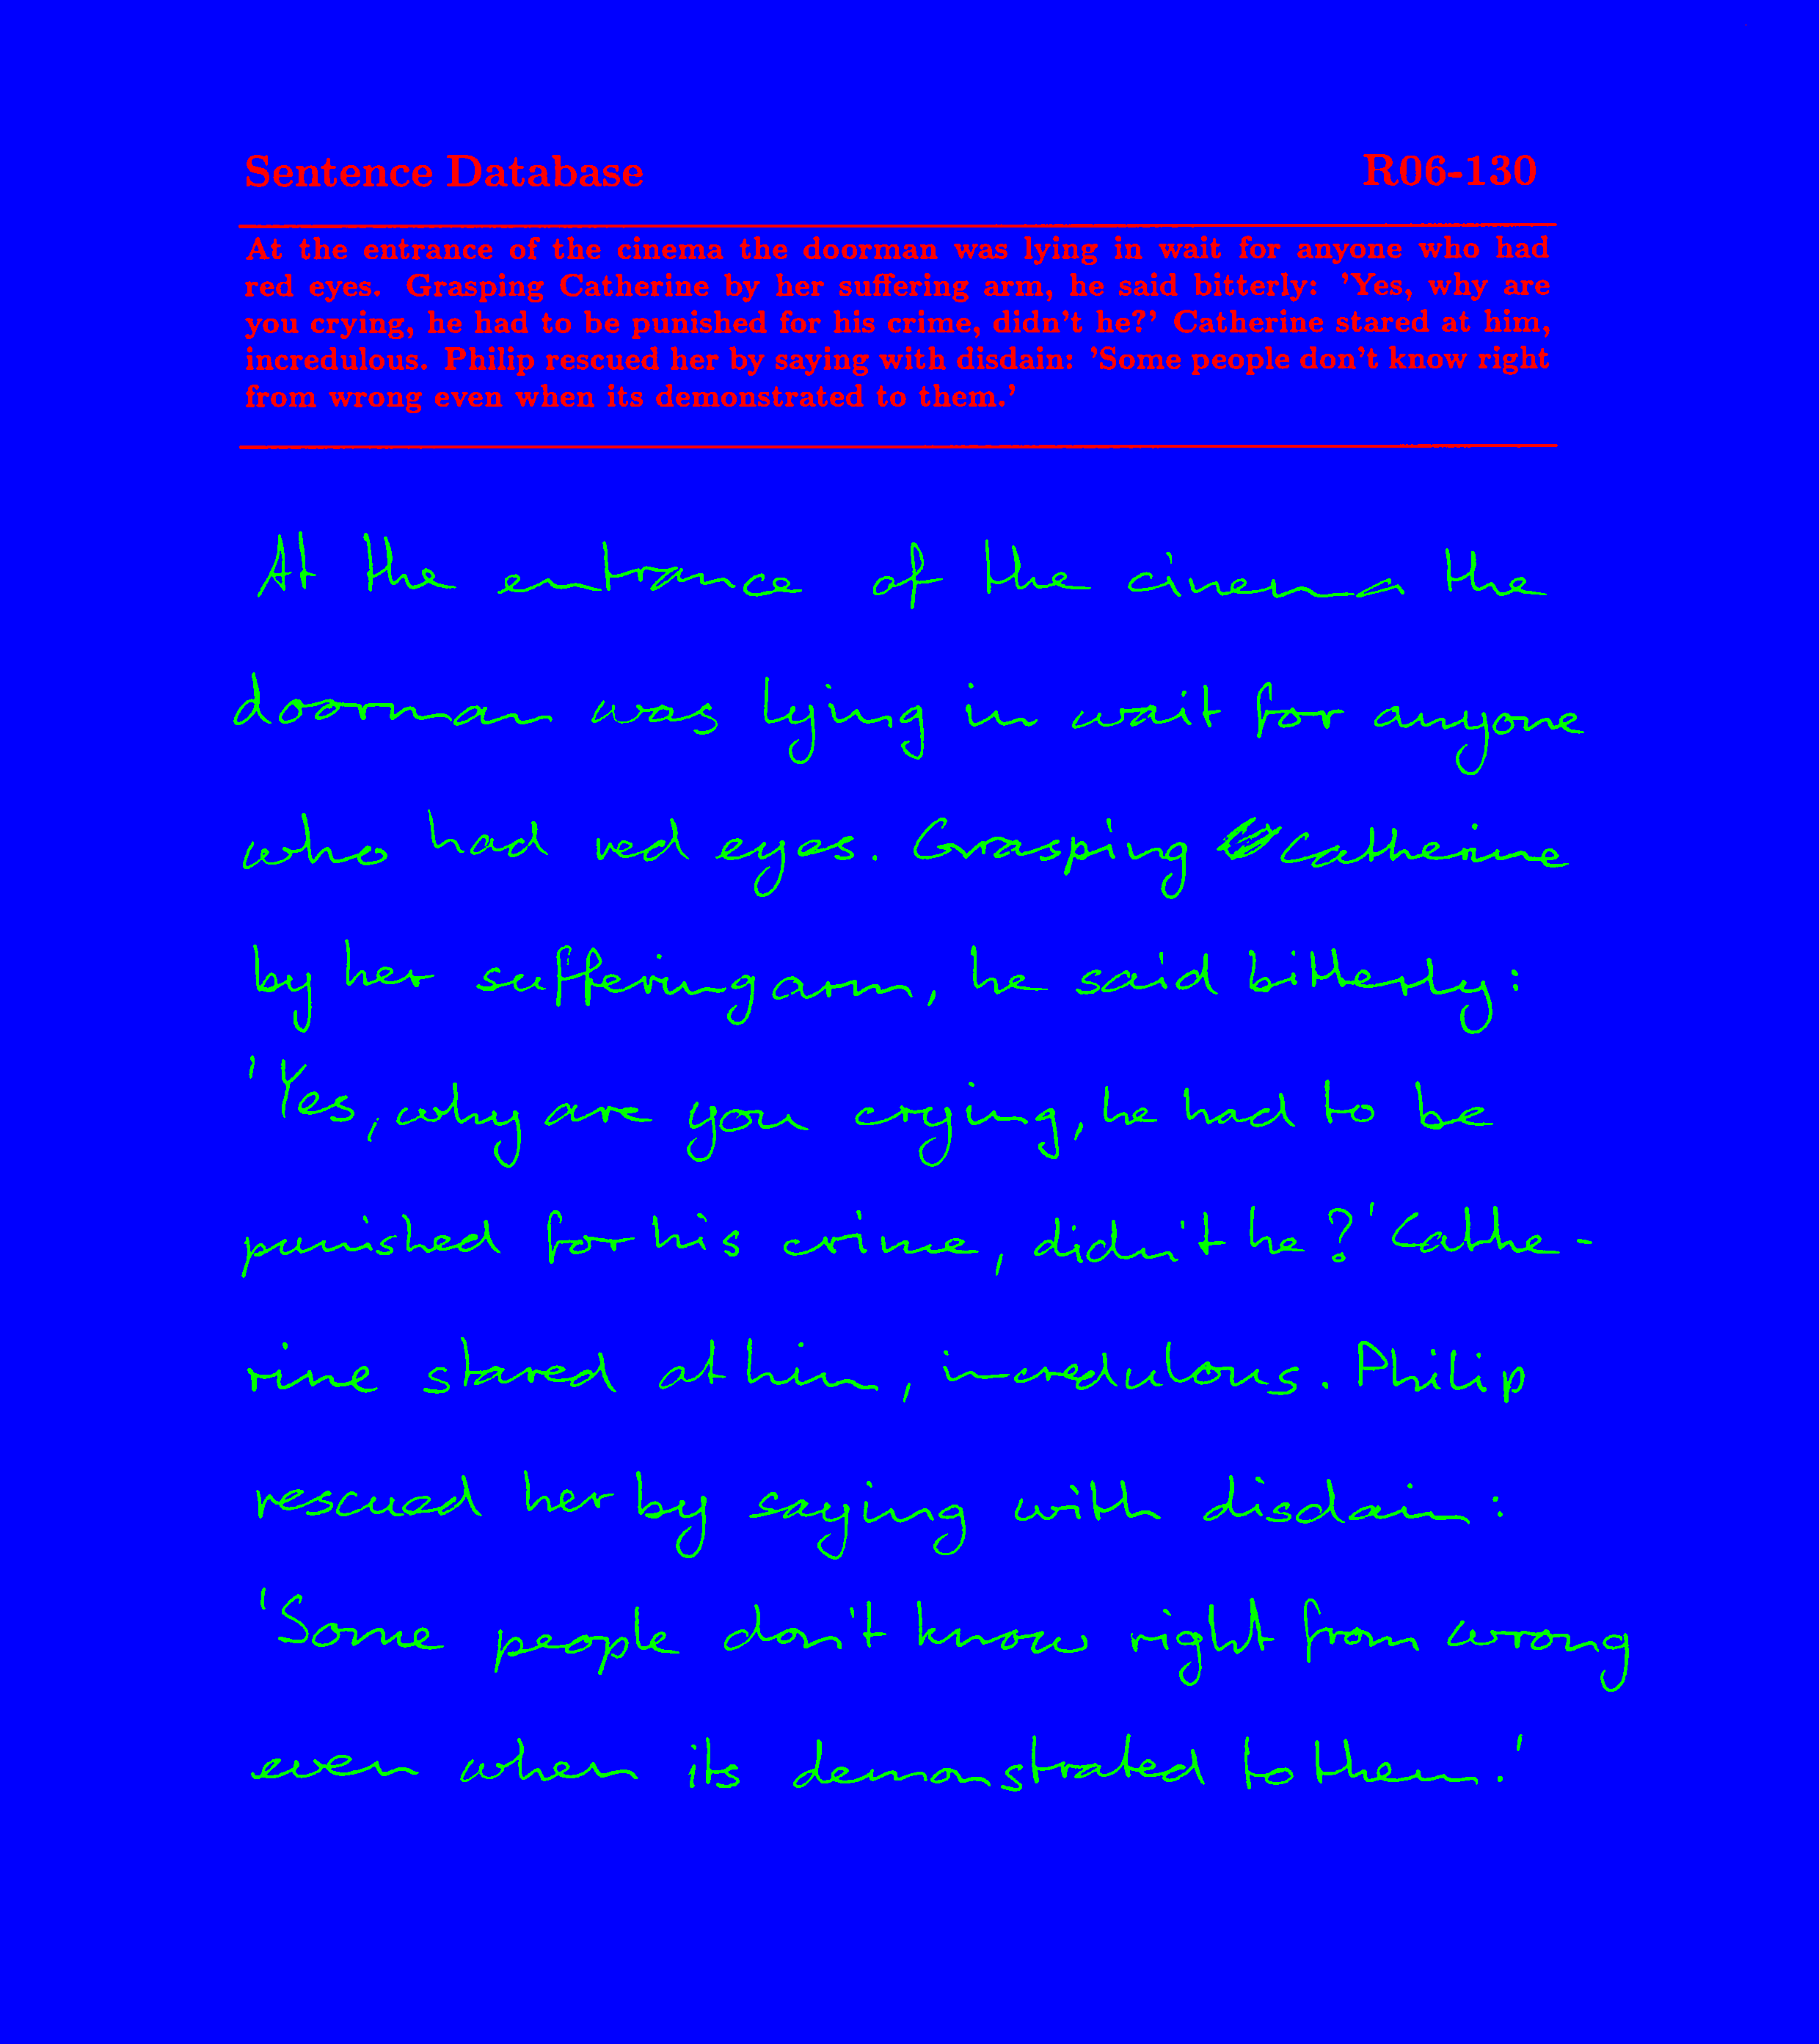 Sentence Database R06-130
At the entrance of the cinema the doorman was lying in wait for anyone who had
red eyes. Grasping Catherine by her suffering arm, he said bitterly: 'Yes, why are
you crying, he had to be punished for his crime, didn't he?' Catherine stared at him,
incredulous. Philip rescued her by saying with disdain: 'Some people don't know right
from wrong even when its demonstrated to them.'
At the entrance of the cinema the
doorman was lying in wait for anyone
who had red eyes. Grasping Catherine
by her suffering arm, he said bitterly:
'Yes, why are you crying, he had to be
punished for his crime, didn't he?' Cathe-
rine stared at him, incredulous. Philip
rescued her by saying with disdain:
'Some people don't know right from wrong
even when its demonstrated to them.'